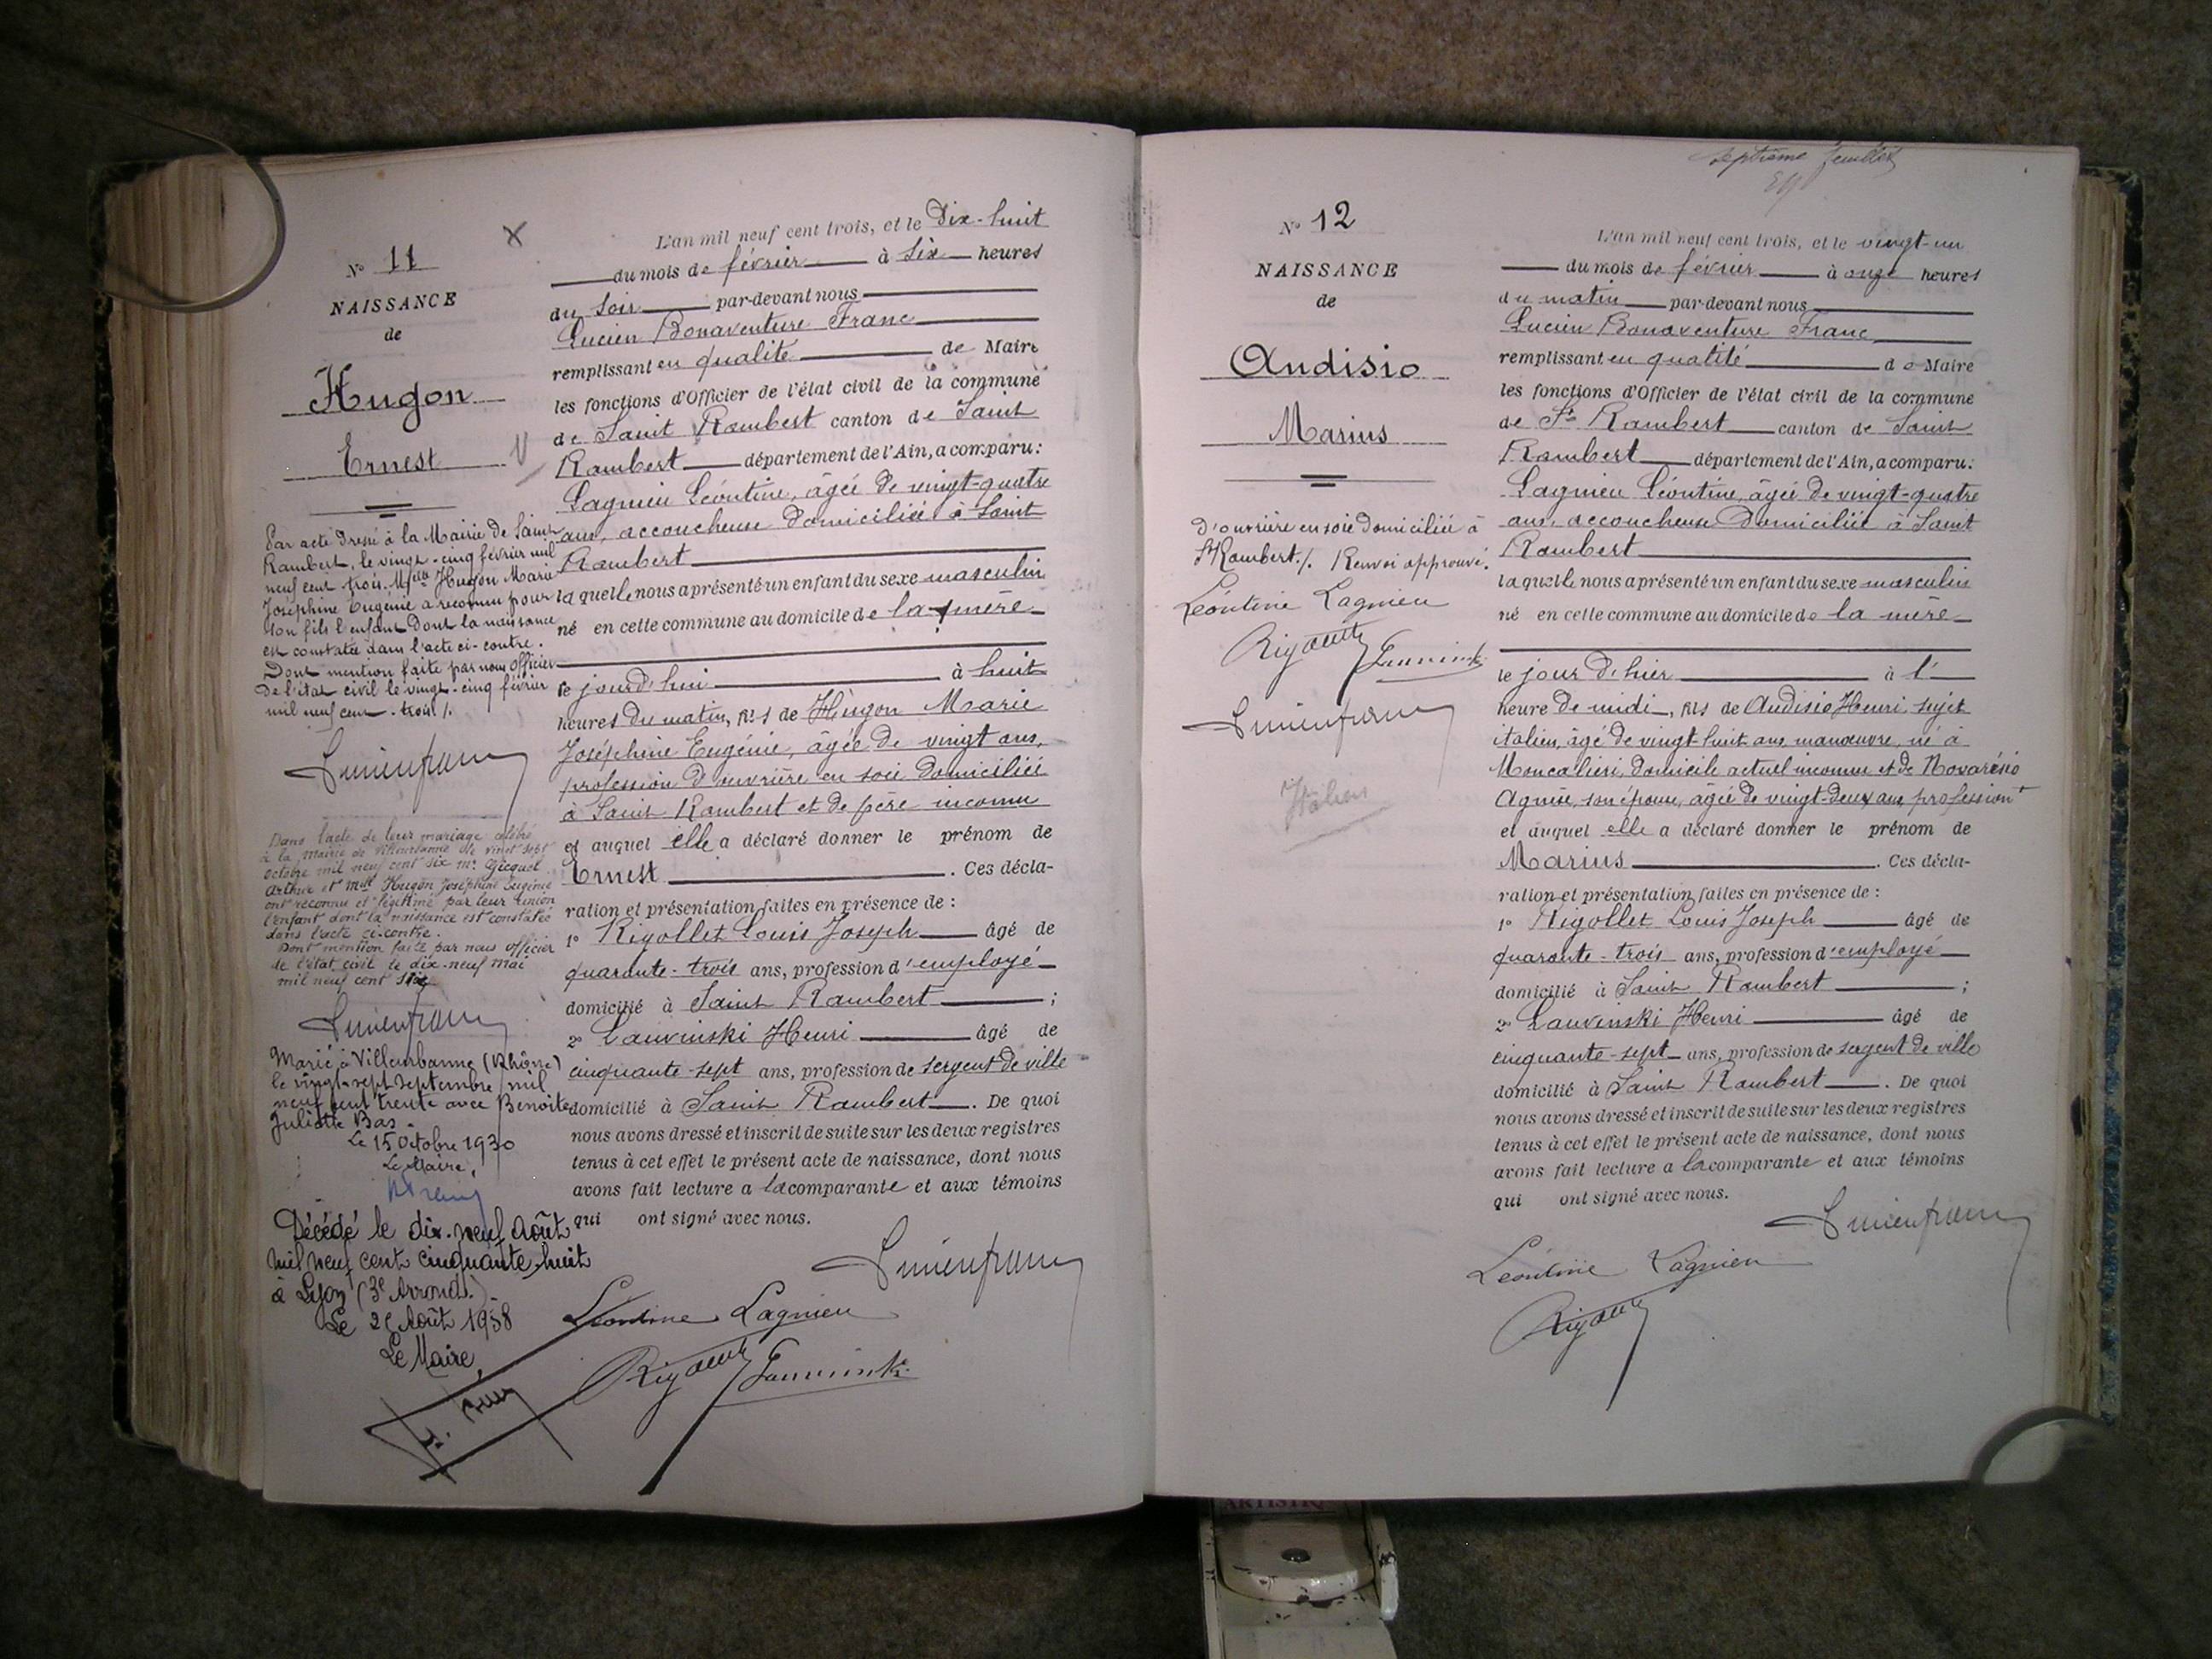 N° 11
NAISSANCE
de
Hugon
Ernest
Par acte dressé à la Mairie de Saint
Rambert, le vingt-cinq février mil
neuf cent trois. Melle Hugon Marie
Joséphine Eugénie a reconnu pour
son fils l'enfant dont la naissance
est constatée dans l'acte ci-contre.
Dont mention faite par nous officier
de l'état civil le vingt-cinq février
mil neuf cent trois /.
Lucien franc
Dans l'acte de leur mariage célébré
à la Mairie de Villeurbanne le vingt sept
octobre mil neuf cent six Mr Gicquel
Arthur et Melle Hugon Joséphine Eugénie
ont reconnu et légitimé par leur union
l'enfant dont la naissance est constatée
dans l'acte ci-contre.
Dont mention faite par nous officier
de l'état civil le dix-neuf mai
mil neuf cent
Lucien franc
Marié à Villeurbanne (Rhône)
le vingt-sept septembre mil
neuf cent trente avec Benoite
Juliette Bas.
Le 15 Octobre 1930
Le Maire,
Décédé le dix-neuf Août
mil neuf cent cinquante-huit
à Lyon (3e Arrond.)
Le Août 1958
Le Maire,
L'an mil neuf cent trois, et le Dix-huit
du mois de février à Six heures
du Soir par-devant nous
Lucien Bonaventure Franc
remplissant en qualité de Maire
les fonctions d'Officier de l'état civil de la commune
de Saint Rambert canton de Saint
Rambert département de l'Ain, a comparu:
Lagnieu Léontine, âgée de vingt-quatre
ans, accoucheuse domiciliée à Saint
Rambert
laquelle nous a présenté un enfant du sexe masculin
né en cette commune au domicile de la mère
le jourd'hui à huit
heures du matin, fils de Hugon Marie
Joséphine Eugénie, âgée de vingt ans,
profession d'ouvrière en soie domiciliée
à Saint Rambert et de père inconnu
et auquel elle a déclaré donner le prénom de
Ernest. Ces décla-
ration et présentation faites en présence de :
1° Rigollet Louis Joseph âgé de
quarante-trois ans, profession d'employé
domicilié à Saint Rambert ;
2° Lauvinski Henri âgé de
cinquante-sept ans, profession de sergent de ville
domicilié à Saint Rambert. De quoi
nous avons dressé et inscrit de suite sur les deux registres
tenus à cet effet le présent acte de naissance, dont nous
avons fait lecture a la comparante et aux témoins
qui ont signé avec nous.
Lucien franc
Léontine Lagnieu
N° 12
NAISSANCE
de
Audisio
Marius
d'ouvrière en soie domiciliée à
St Rambert./. Renvoi approuvé.
Léontine Lagnieu
Lucien franc
Italien
septième feuillet
L'an mil neuf cent trois, et le vingt-un
du mois de février à onze heures
du matin par-devant nous
Lucien Bonaventure Franc
remplissant en qualité de Maire
les fonctions d'Officier de l'état civil de la commune
de St Rambert canton de Saint
Rambert département de l'Ain, a comparu:
Lagnieu Léontine, âgée de vingt-quatre
ans, accoucheuse domiciliée à Saint
Rambert
laquelle nous a présenté un enfant du sexe masculin
né en cette commune au domicile de la mère
le jour d'hier à l'
heure de midi, fils de Audisio Henri, sujet
italien, âgé de vingt-huit ans, manœuvre, né à
Moncalieri, domicile actuel inconnu et de Novarésio
Agnèse, son épouse, âgée de vingt-deux ans, profession
et auquel elle a déclaré donner le prénom de
Marius. Ces décla-
ration et présentation faites en présence de :
1° Rigollet Louis Joseph âgé de
quarante-trois ans, profession d'employé
domicilié à Saint Rambert ;
2° Lauvinski Henri âgé de
cinquante-sept ans, profession de sergent de ville
domicilié à Saint Rambert. De quoi
nous avons dressé et inscrit de suite sur les deux registres
tenus à cet effet le présent acte de naissance, dont nous
avons fait lecture a la comparante et aux témoins
qui ont signé avec nous.
Lucien franc
Léontine Lagnieu